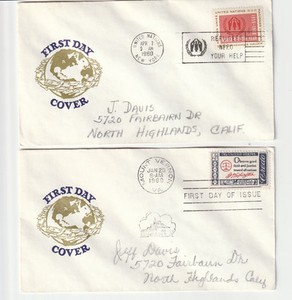 FIRST DAY
COVER
UNITED NATIONS
APR 7
1960
NEW YORK
UNITED NATIONS
REFUGEES
NEED
YOUR HELP
J. DAVIS
5720 FAIRBAIRN DR
NORTH HIGHLANDS, CALIF
FIRST DAY
COVER
MOUNT VERNON
JAN 20
1960
VA.
FIRST DAY OF ISSUE
Jeff Davis
5720 Fairbairn Dr
North Highlands Calif